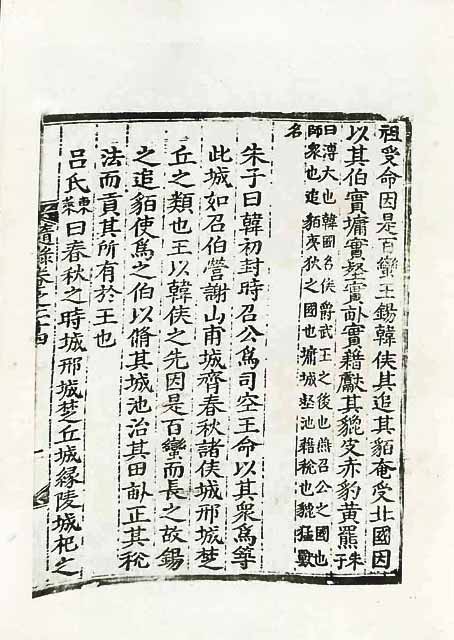 祖受命因是百蠻王錫韓侯其追其貊奄受北國因
以其伯實墉實壑實畝實藉獻其貔皮赤豹黃羆朱子
曰溥大也韓國名侯爵武王之後也燕召公之國也
師衆也追貊夷狄之國也墉城壑池藉稅也貔猛獸
名
朱子曰韓初封時召公爲司空王命以其衆爲築
此城如召伯營謝山甫城齊春秋諸侯城邢城楚
丘之類也王以韓侯之先因是百蠻而長之故錫
之追貊使爲之伯以脩其城池治其田畝正其稅
法而貢其所有於王也
呂氏東萊曰春秋之時城邢城楚丘城緣陵城杞之
隨錄卷之二十四